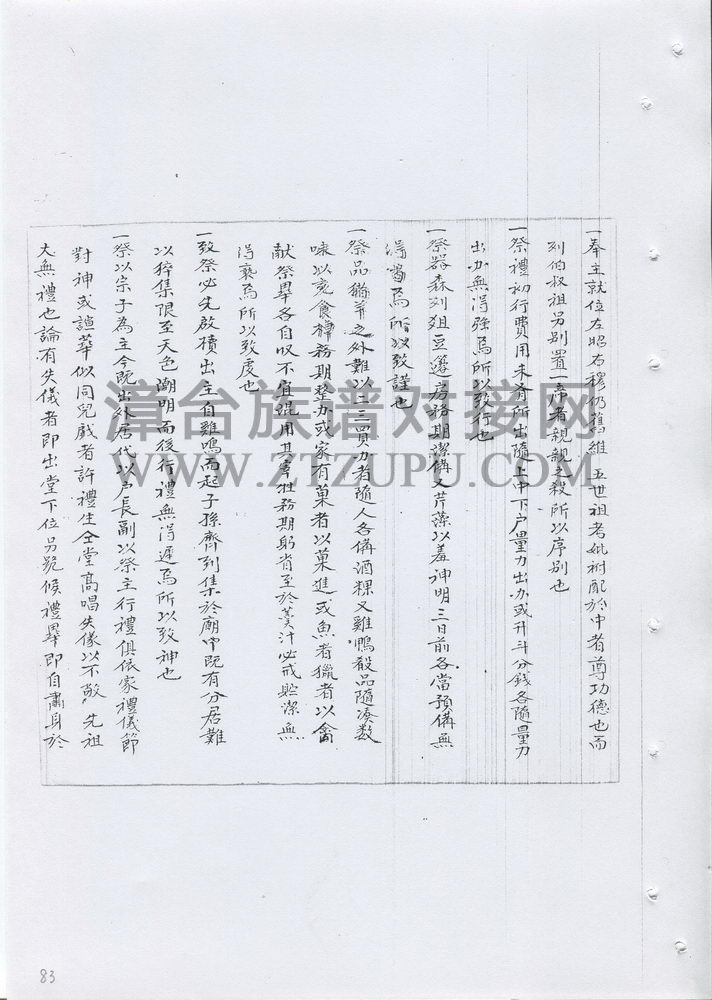 一奉主就位左昭右穆仍舊維五世祖考妣祔配於中者尊功德也而
列伯叔祖另別置一席者親親之殺所以序別也
一祭禮初行費用未有所出隨上中下戶量力出办或升斗分錢各隨量力
出办無得強焉所以敦行也
一祭器森列俎豆簿房務期潔俻又芹藻以羞神明三日前各當預俻無
得焉所以致謹也
一祭品猪羊之外難以二三四買办者隨人各俻酒粿又雞鴨殽品隨凑数
味以充食務期整办或家有菓者以菓進或魚者獵者以禽
献祭畢各自収不宜混用其牽牲務期躬省至於羹汁必戒貯潔無
得褻焉所以致虔也
一致祭必先啟櫝出主自雞鳴而起子孫齊列集於廟中既有分居難
以猝集限至天色潮明而後行禮無得遲焉所以致神也
一祭以宗子為主今既出外居代以户長副以祭主行禮俱依家禮儀節
對神或諠華似同兒戲者許禮生仝堂高唱失儀以不敬先祖
大無禮也論有失儀者即出堂下位另跪候禮畢即自肅身於
漳台族谱对接网
WWW.ZTZUPU.COM
83